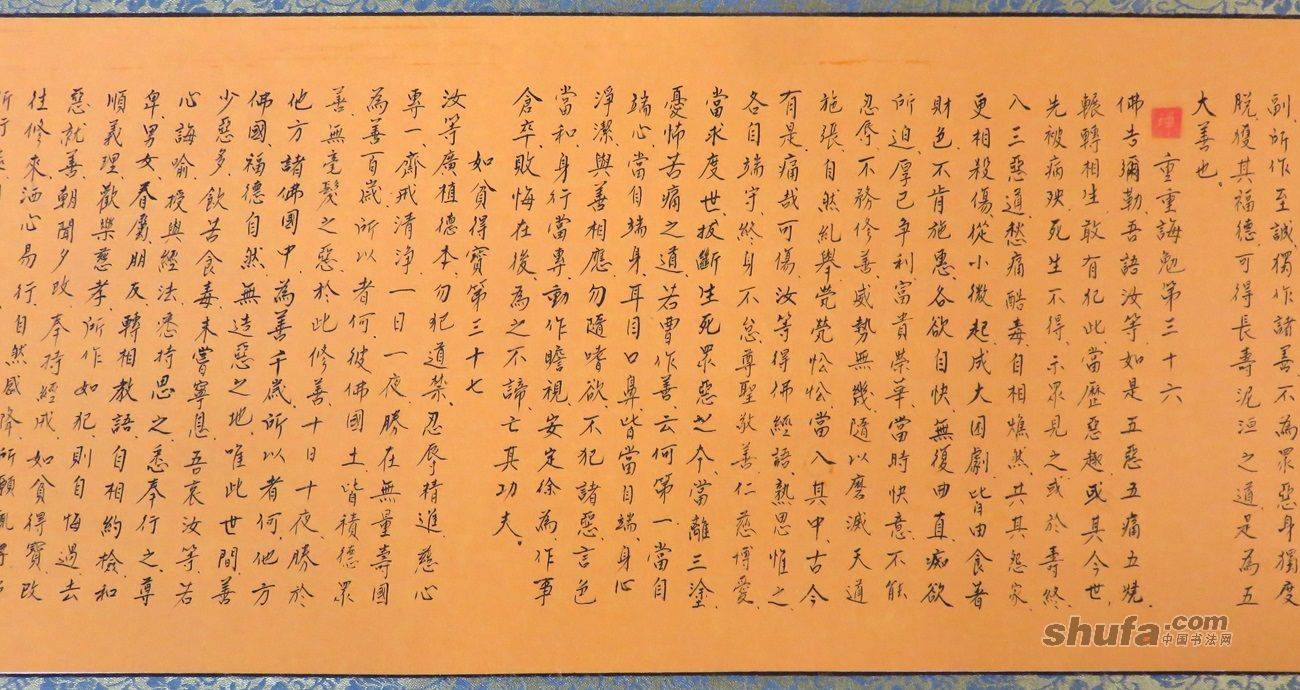 副、所作至誠、獨作諸善、不為眾惡、身獨度
脫、獲其福德、可得長壽泥洹之道、是為五
大善也。
重重誨勉第三十六
佛告彌勒、吾語汝等、如是五惡五痛五燒、
輾轉相生、敢有犯此、當歷惡趣、或其今世、
先被病殃、死生不得、示眾見之、或於壽終、
入三惡道、愁痛酷毒、自相燋然、共其怨家、
更相殺傷、從小微起、成大困劇、皆由貪著
財色、不肯施惠、各欲自快、無復曲直、痴欲
所迫、厚己爭利、富貴榮華、當時快意、不能
忍辱、不務修善、威勢無幾、隨以磨滅、天道
施張、自然糺舉、煢煢忪忪、當入其中、古今
有是、痛哉可傷、汝等得佛經語、熟思惟之、
各自端守、終身不怠、尊聖敬善、仁慈博愛、
當求度世、拔斷生死眾惡之本、當離三塗、
憂怖苦痛之道、若曹作善、云何第一、當自
端心、當自端身、耳目口鼻、皆當自端、身心
淨潔、與善相應、勿隨嗜欲、不犯諸惡、言色
當和、身行當專、動作瞻視、安定徐為、作事
倉卒、敗悔在後、為之不諦、亡其功夫。
如貧得寶第三十七
汝等廣植德本、勿犯道禁、忍辱精進、慈心
專一、齋戒清淨、一日一夜、勝在無量壽國
為善百歲、所以者何、彼佛國土、皆積德眾
善、無毫髮之惡、於此修善、十日十夜、勝於
他方諸佛國中、為善千歲、所以者何、他方
佛國、福德自然、無造惡之地、唯此世間、善
少惡多、飲苦食毒、未嘗寧息、吾哀汝等、若
心誨喻、授與經法、悉持思之、悉奉行之、尊
卑、男女、眷屬、朋友、轉相教語、自相約檢、和
順義理、歡樂慈孝、所作如犯、則自悔過、去
惡就善、朝聞夕改、奉持經戒、如貧得寶、改
往修來、洒心易行、自然感降、所願輒得
所行
shufa.com
中国书法网